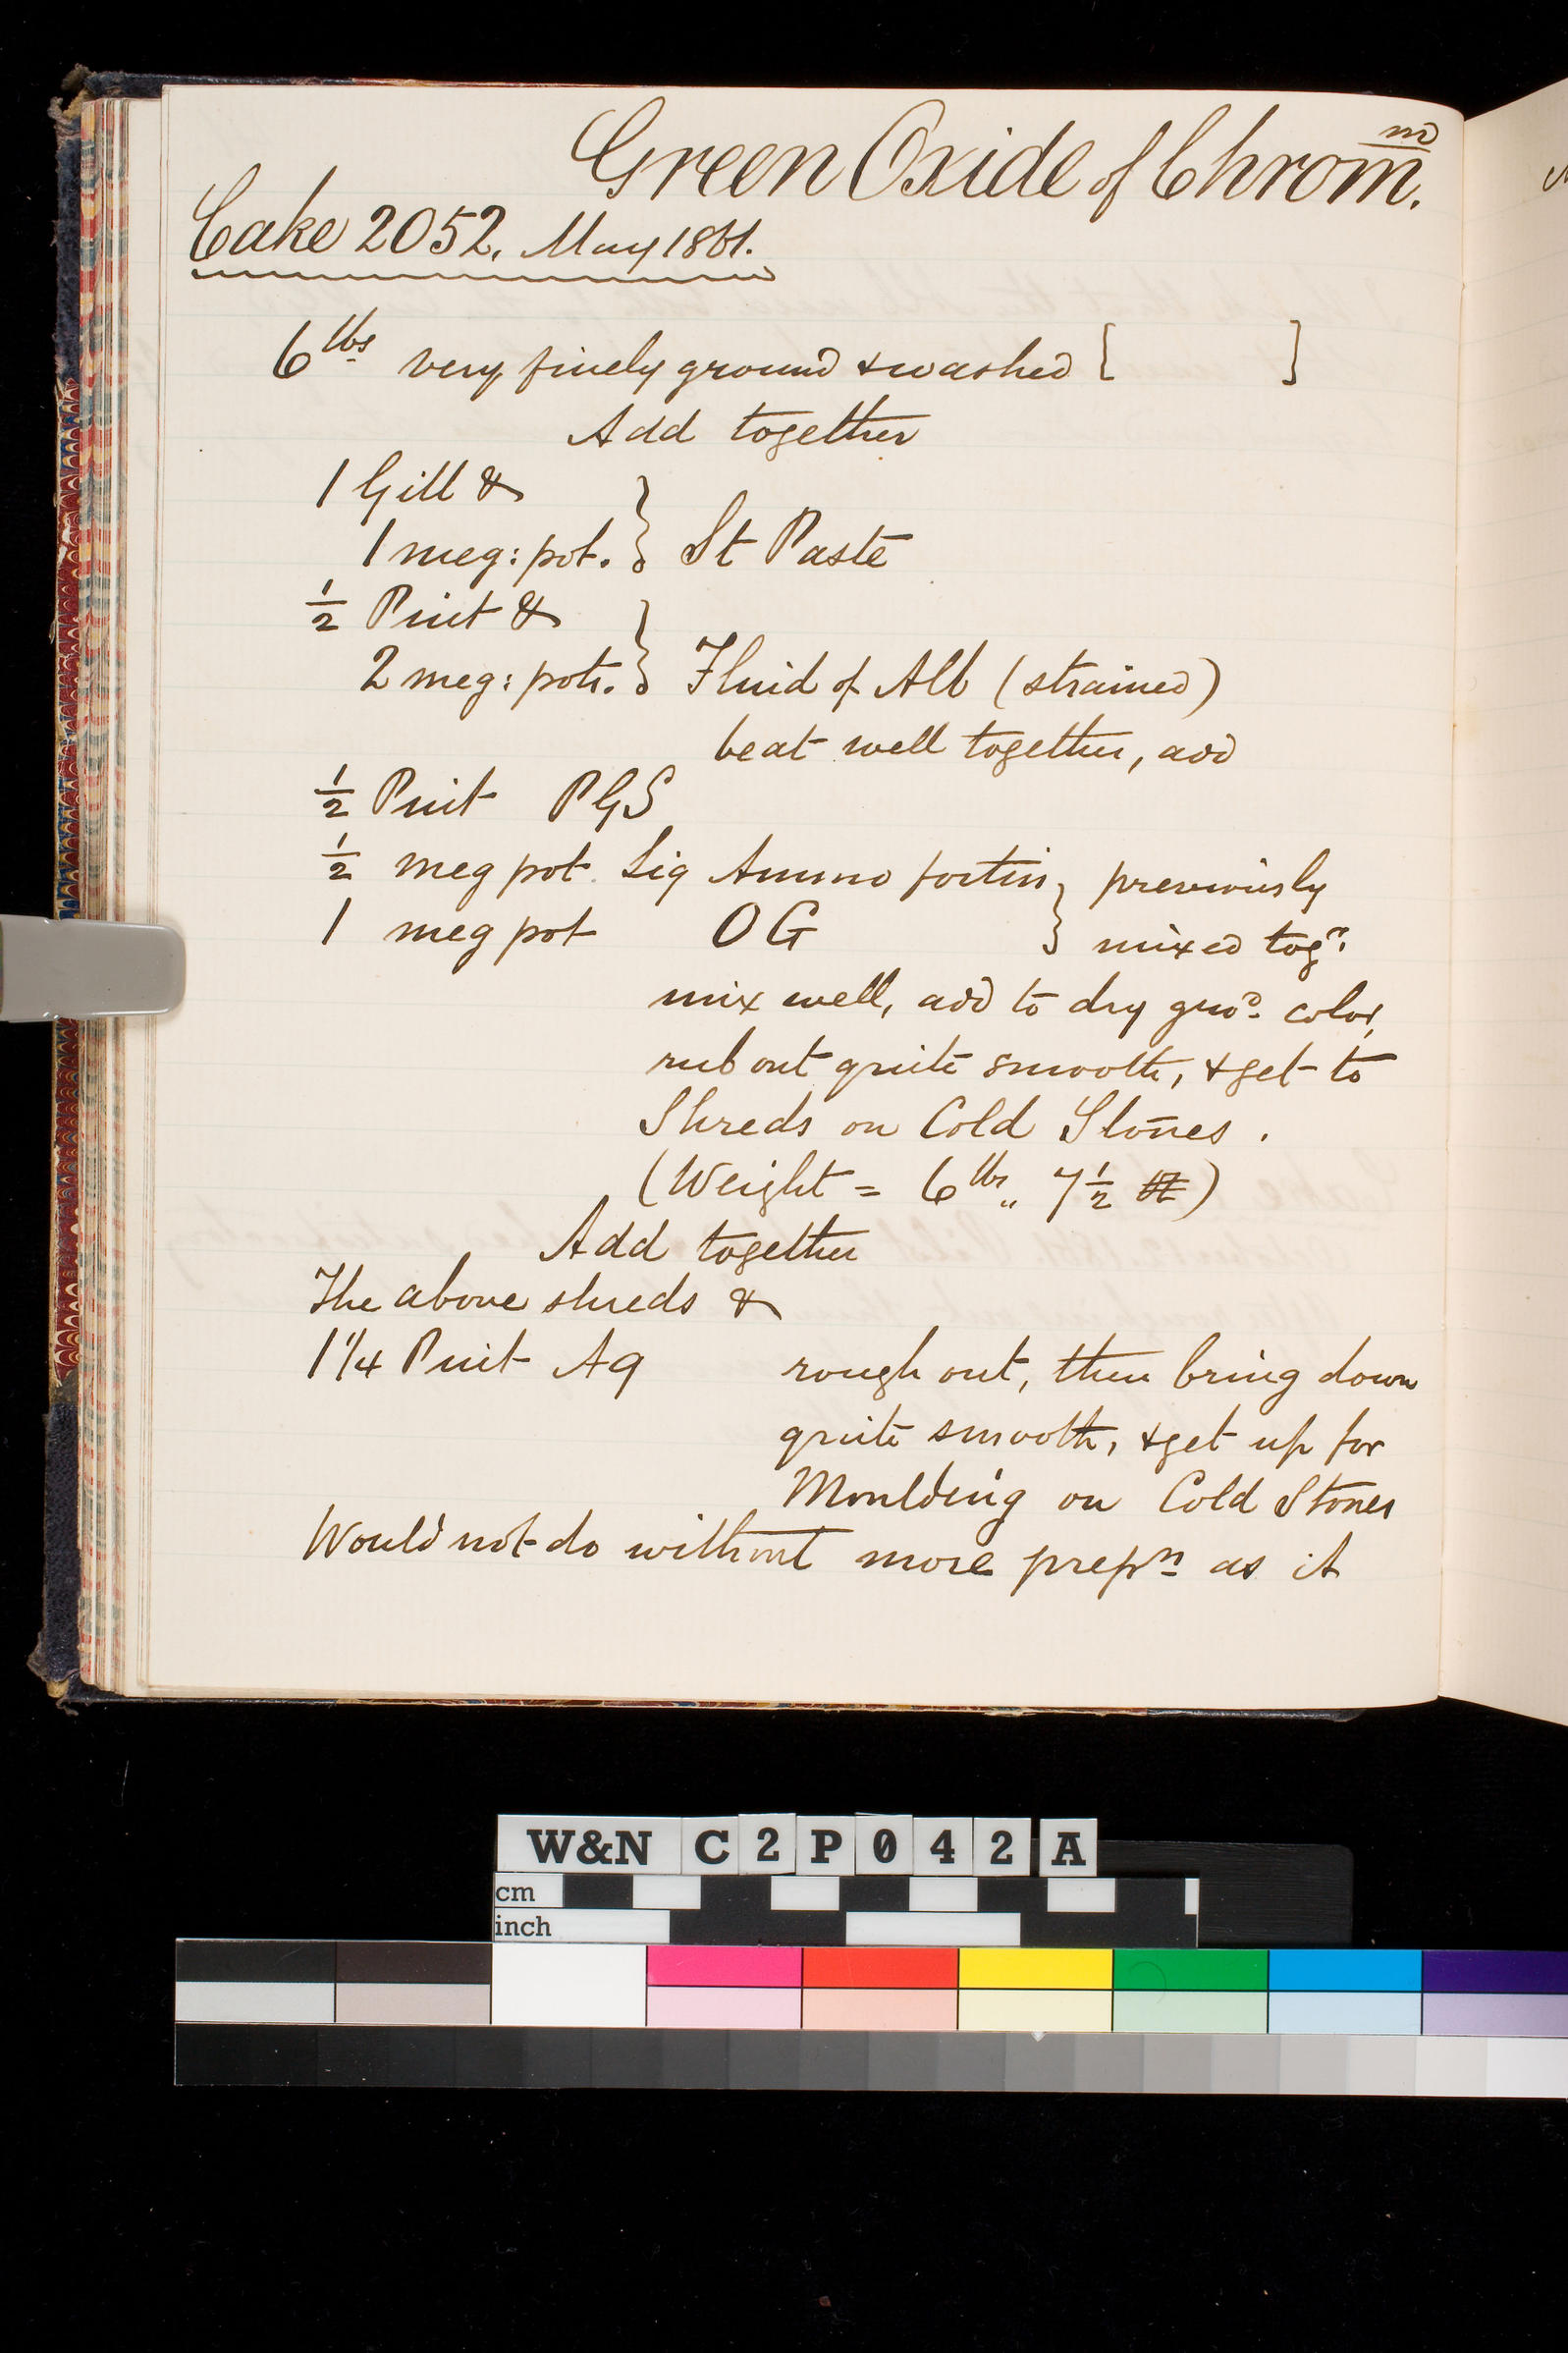 Green Oxide of Chrom.m
Cake 2052. May 1861.
6 lbs very finely ground & washed [ ]
Add together
1 Gill &
1 meg: pot. } St Paste
1/2 Pint &
2 meg: pots. } Fluid of Alb (strained)
beat well together, add
1/2 Pint PGS
1/2 meg pot Liq Ammo fortis } previously
1 meg pot OG } mixed togr.
mix well, add to dry grod. color,
rub out quite smooth, & get to
Shreds on Cold Stones.
(Weight = 6 lbs 7 1/2)
Add together
The above shreds &
1 1/4 Pint Aq rough out, then bring down
quite smooth, & get up for
Moulding on Cold Stones
Would not do without more prepn as it
W&N C2P042A
cm
inch